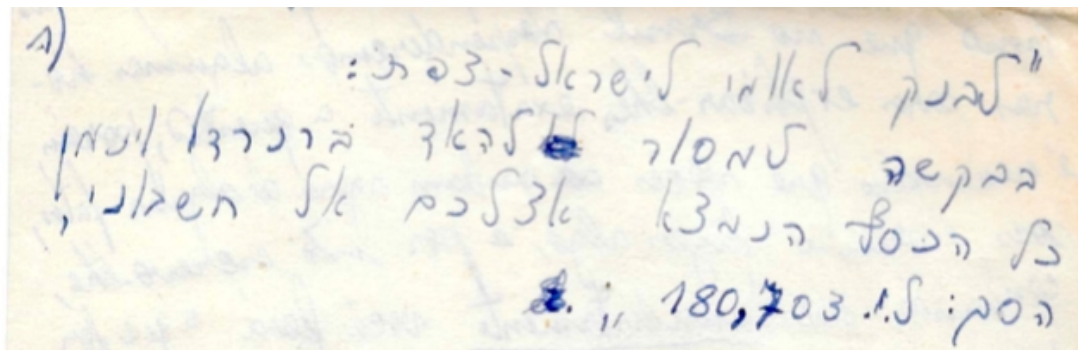 א)
"לבנק לאומי לישראל-צפת:
בבקשה למסור להאד ברנרדו ויצמן
כל הכסף הנמצא אצלכם אל חשבוני;
הסב: ל.י. 180,703 "